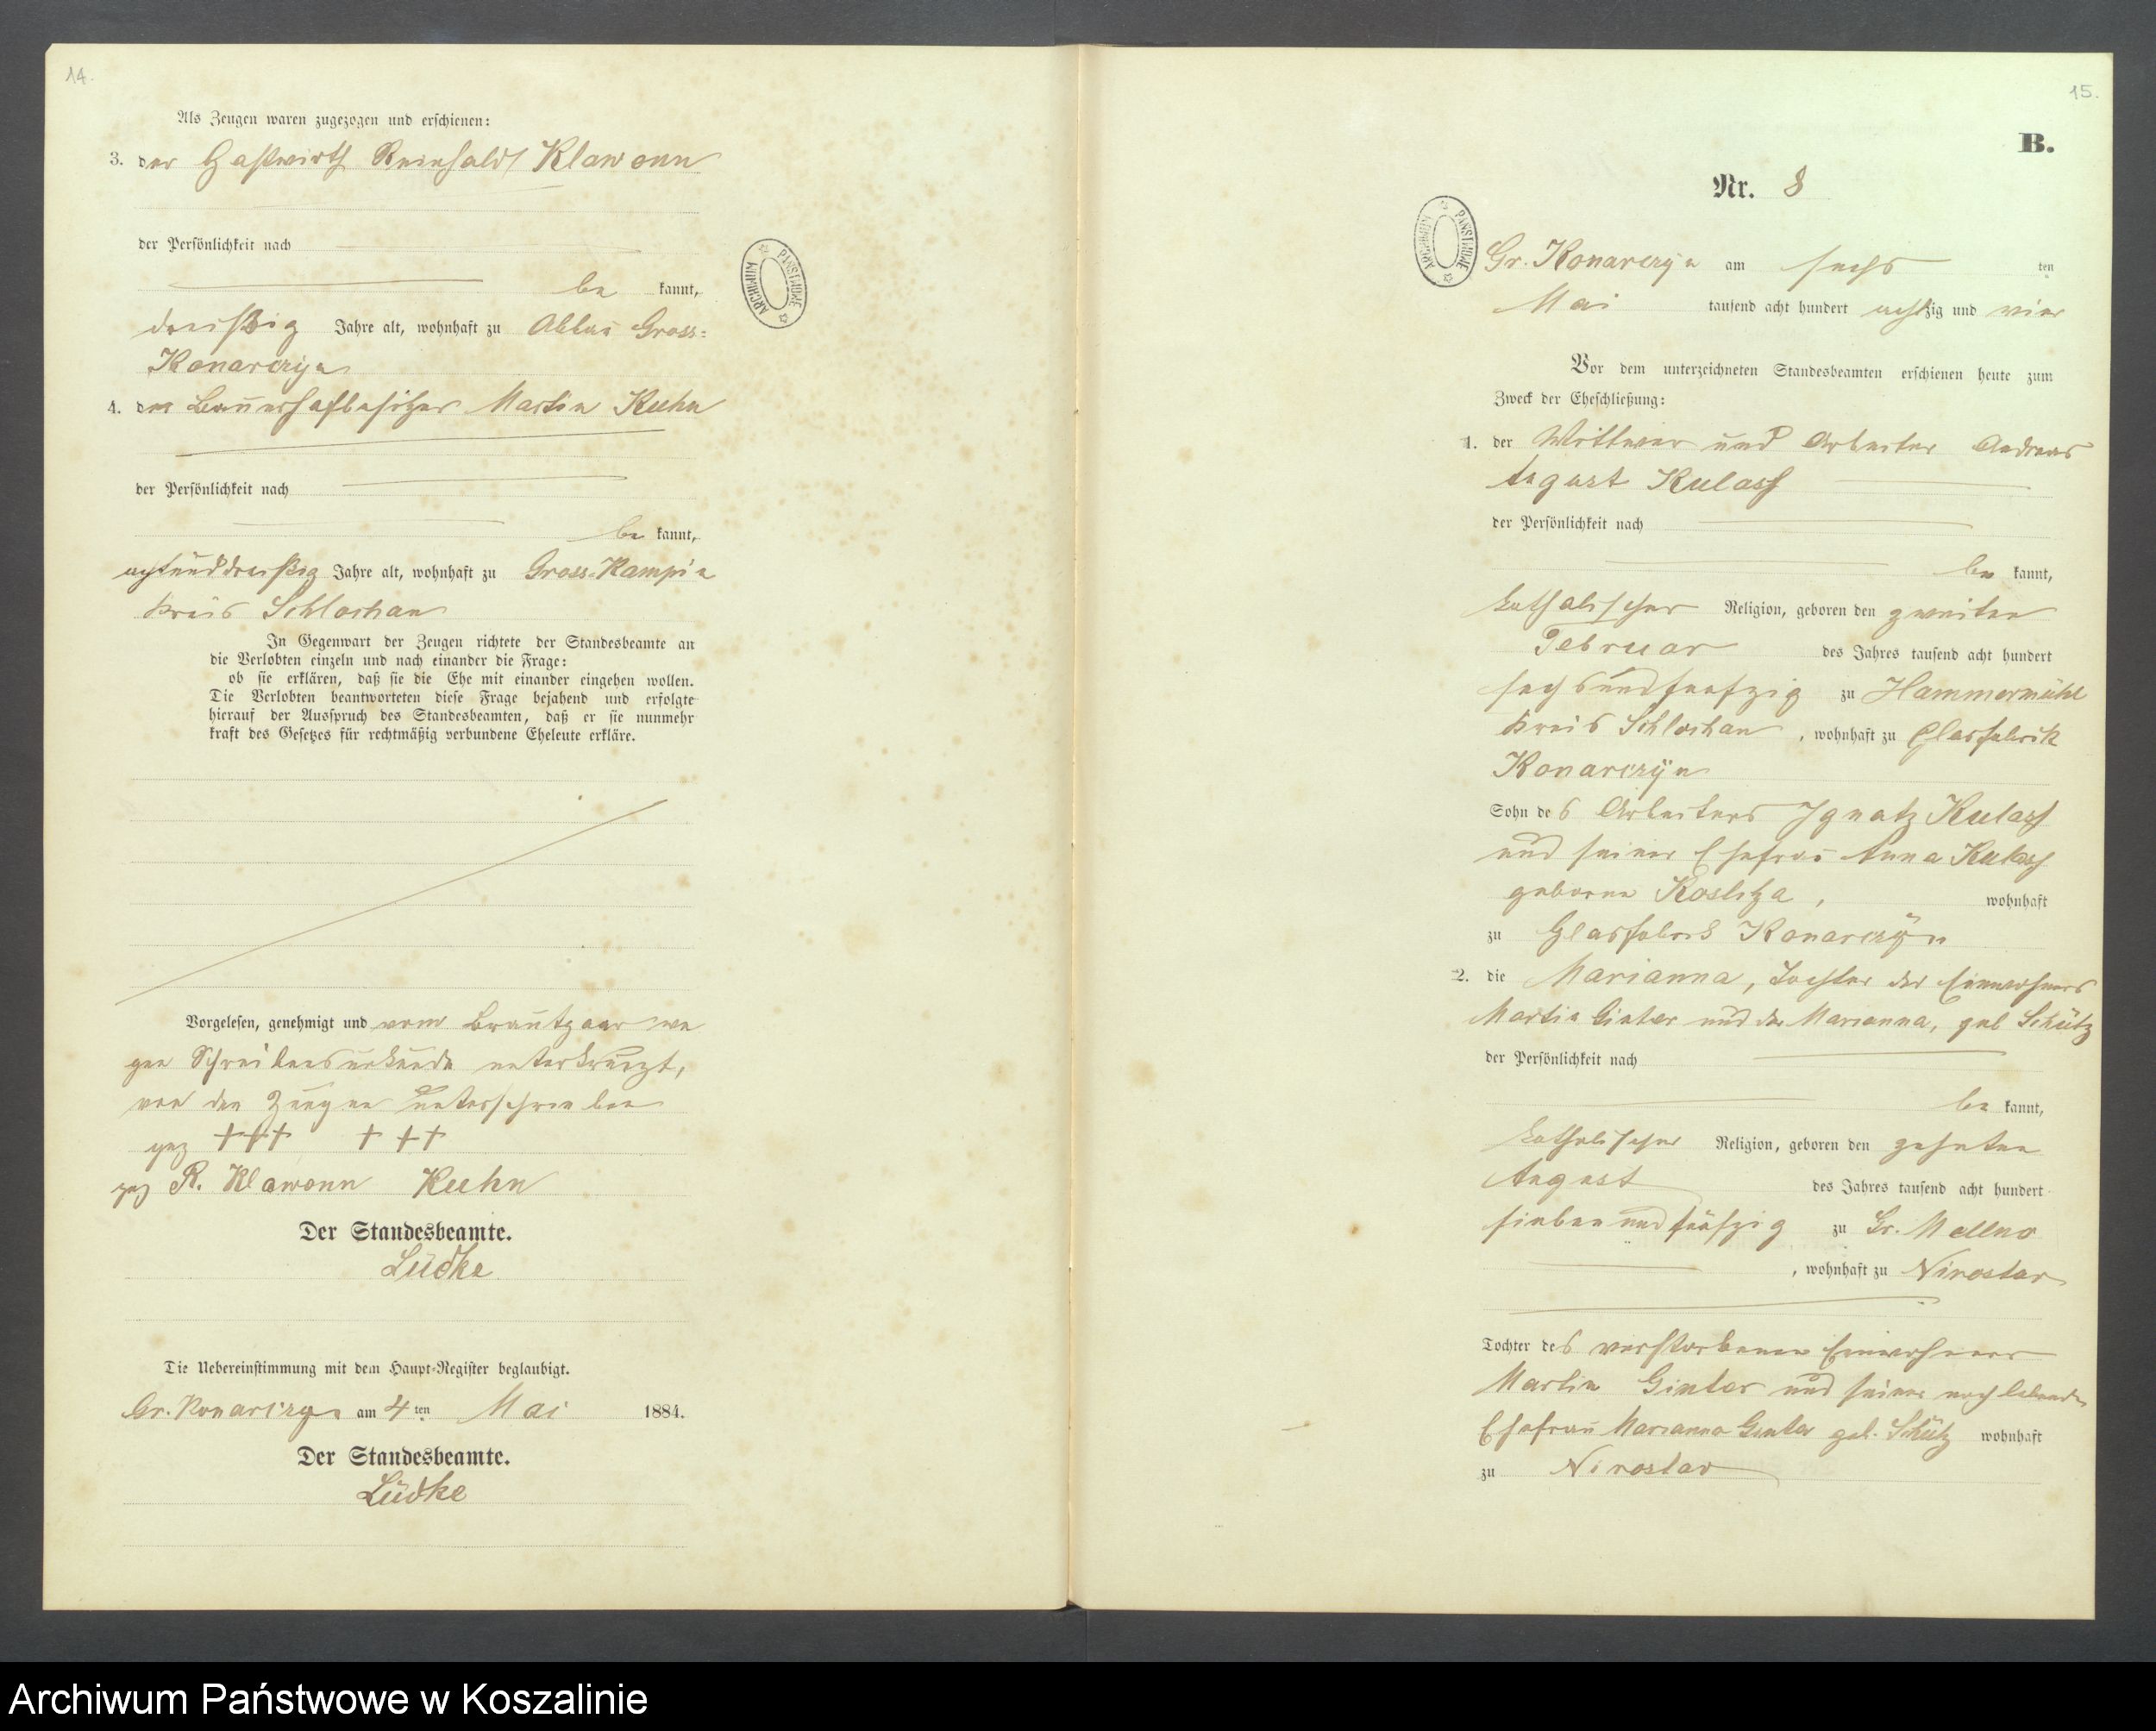 14.
Als Zeugen waren zugezogen und erschienen:
3. der Gastwirth Reinhold Klawonn
der Persönlichkeit nach
be kannt,
dreißig Jahre alt, wohnhaft zu Abbau Gross-
Konarczyn
4. der Bauerhofbesitzer Martin Kuhn
der Persönlichkeit nach
be kannt,
achtunddreißig Jahre alt, wohnhaft zu Gross-Kampin
Kreis Schlochau
In Gegenwart der Zeugen richtete der Standesbeamte an
die Verlobten einzeln und nach einander die Frage:
ob sie erklären, daß sie die Ehe mit einander eingehen wollen.
Die Verlobten beantworteten diese Frage bejahend und erfolgte
hierauf der Ausspruch des Standesbeamten, daß er sie nunmehr
kraft des Gesetzes für rechtmäßig verbundene Eheleute erkläre.
Vorgelesen, genehmigt und vom Brautpaar we
gen Schreibensunkunde unterkreuzt,
von den Zeugen unterschrieben
gez +++ +++
gez R. Klawonn Kuhn
Der Standesbeamte.
Lüdke
Die Uebereinstimmung mit dem Haupt-Register beglaubigt.
Gr. Konarczyn am 4 ten Mai 1884.
Der Standesbeamte.
Lüdke
ARCHIWUM PAŃSTWOWE
15.
B.
Nr. 8
ARCHIWUM PAŃSTWOWE
Gr. Konarczyn am sechs ten
Mai tausend acht hundert achtzig und vier
Vor dem unterzeichneten Standesbeamten erschienen heute zum
Zweck der Eheschließung:
1. der Wittwer und Arbeiter Andreas
August Kulass
der Persönlichkeit nach
be kannt,
katholischer Religion, geboren den zweiten
Februar des Jahres tausend acht hundert
sechsundfunfzig zu Hammermühl
Kreis Schlochau, wohnhaft zu Glasfabrik
Konarczÿn
Sohn des Arbeiters Ignatz Kulass
und seiner Ehefrau Anna Kulass
geborne , wohnhaft
zu Glasfabrik Konarczÿn
2. die Marianna, Tochter des Einwohners
Martin Ginter und der Marianna, geb Schütz
der Persönlichkeit nach
be kannt,
katholischer Religion, geboren den zehnten
August des Jahres tausend acht hundert
siebenundfünfzig zu Gr. Mellno
, wohnhaft zu Nirostaw
Tochter des verstorbenen Einwohners
Martin Ginter und seiner noch lebenden
Ehefrau Marianna Ginter geb. Schütz wohnhaft
zu Nirostaw
Archiwum Państwowe w Koszalinie